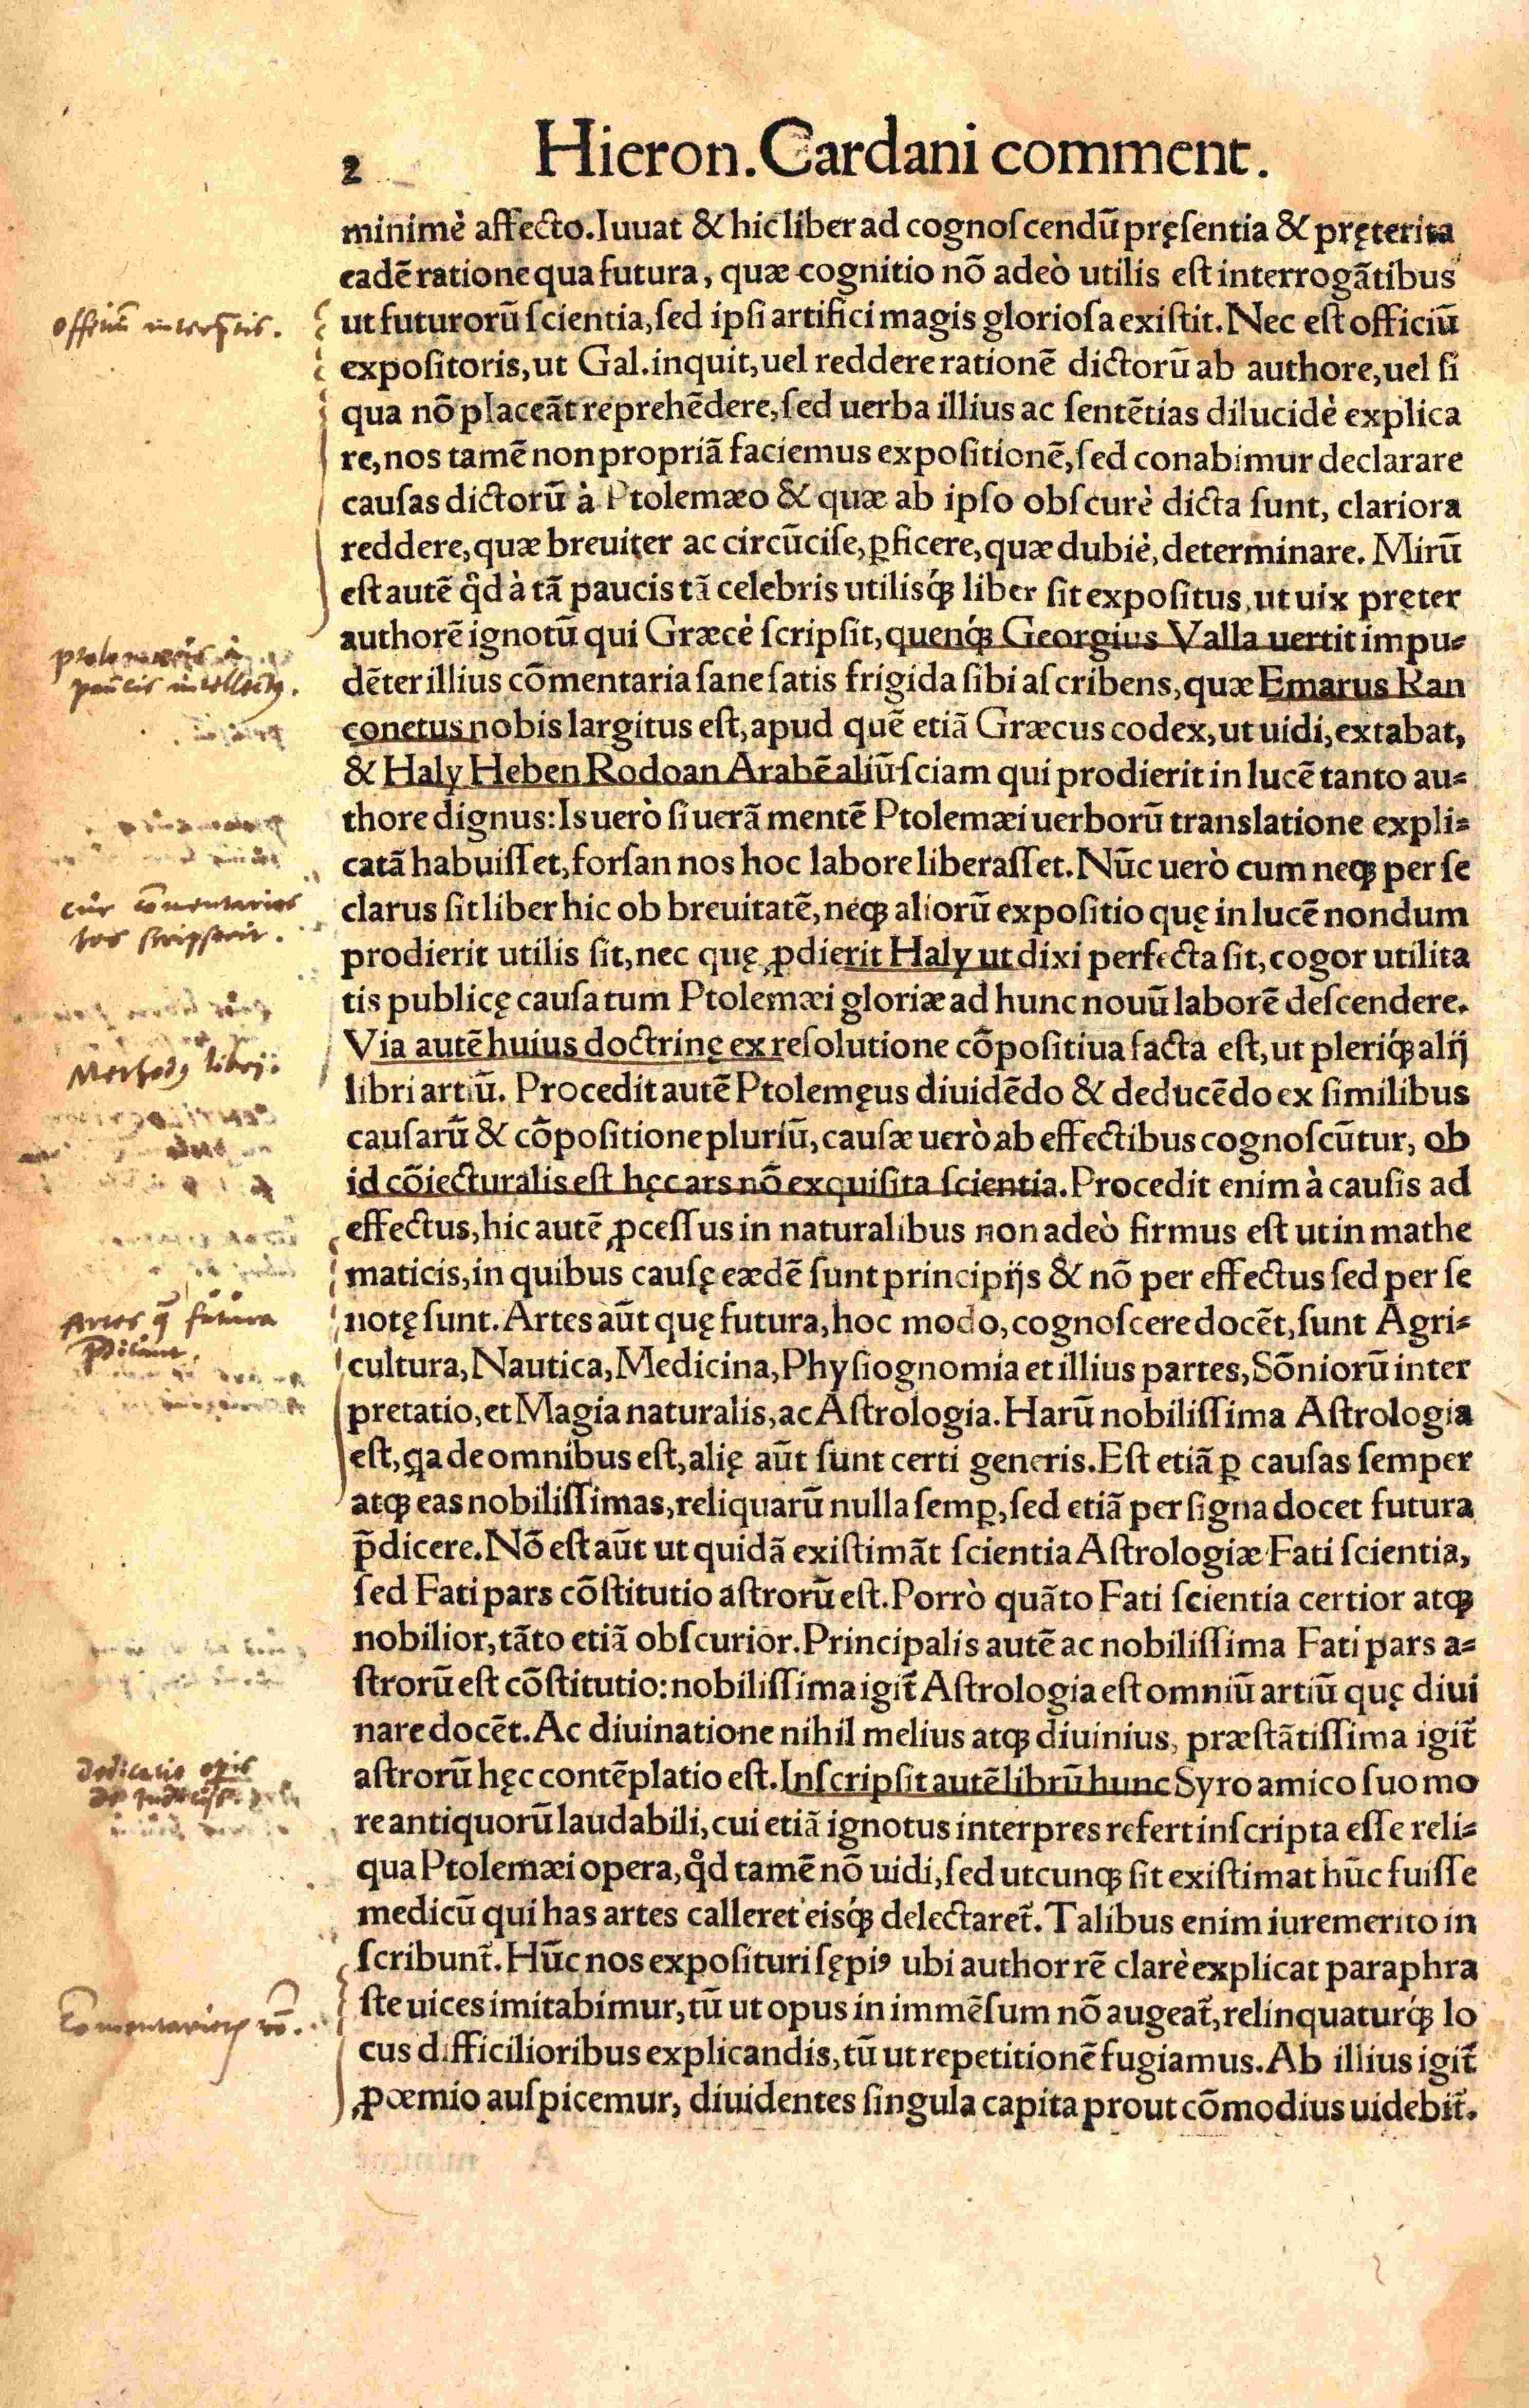 2 Hieron. Cardani comment.
minimè affecto. Iuuat & hic liber ad cognoscendũ pręsentia & pręterita
eadẽ ratione qua futura, quæ cognitio nõ adeò utilis est interrogãtibus
ut futurorũ scientia, sed ipsi artifici magis gloriosa existit. Nec est officiũ
expositoris, ut Gal. inquit, uel reddere rationẽ dictorũ ab authore, uel si
qua nõ placeãt reprehẽdere, sed uerba illius ac sentẽtias dilucidè explica
re, nos tamẽ non propriã faciemus expositionẽ, sed conabimur declarare
causas dictorũ à Ptolemæo & quæ ab ipso obscurè dicta sunt, clariora
reddere, quæ breuiter ac circũcise, ꝑficere, quæ dubiè, determinare. Mirũ
est autẽ q̃d à tã paucis tã celebris utilisq́ꝫ liber sit expositus, ut uix pręter
authorẽ ignotũ qui Græcè scripsit, quenq́ꝫ Georgius Valla uertit impu⸗
dẽter illius cõmentaria sane satis frigida sibi ascribens, quæ Emarus Ran
conetus nobis largitus est, apud quẽ etiã Græcus codex, ut uidi, extabat,
& Haly Heben Rodoan Arabẽ aliũ sciam qui prodierit in lucẽ tanto au⸗
thore dignus: Is uerò si uerã mentẽ Ptolemæi uerborũ translatione expli⸗
catã habuisset, forsan nos hoc labore liberasset. Nũc uerò cum neqꝫ per se
clarus sit liber hic ob breuitatẽ, neqꝫ aliorũ expositio quę in lucẽ nondum
prodierit utilis sit, nec quę ꝓdierit Haly ut dixi perfecta sit, cogor utilita
tis publicę causa tum Ptolemæi gloriæ ad hunc nouũ laborẽ descendere.
Via autẽ huius doctrinę ex resolutione cõpositiua facta est, ut pleriq́ꝫ alij
libri artiũ. Procedit autẽ Ptolemęus diuidẽdo & deducẽdo ex similibus
causarũ & cõpositione pluriũ, causæ uerò ab effectibus cognoscũtur, ob
id cõiecturalis est hęc ars nõ exquisita scientia. Procedit enim à causis ad
effectus, hic autẽ ꝓcessus in naturalibus non adeò firmus est ut in mathe
maticis, in quibus causę eædẽ sunt principijs & nõ per effectus sed per se
notę sunt. Artes aũt quę futura, hoc modo, cognoscere docẽt, sunt Agri⸗
cultura, Nautica, Medicina, Physiognomia et illius partes, Sõniorũ inter
pretatio, et Magia naturalis, ac Astrologia. Harũ nobilissima Astrologia
est, qa de omnibus est, alię aũt sunt certi generis. Est etiã ꝑ causas semper
atqꝫ eas nobilissimas, reliquarũ nulla semꝑ, sed etiã per signa docet futura
p̃dicere. Nõ est aũt ut quidã existimãt scientia Astrologiæ Fati scientia,
sed Fati pars cõstitutio astrorũ est. Porrò quãto Fati scientia certior atqꝫ
nobilior, tãto etiã obscurior. Principalis autẽ ac nobilissima Fati pars a⸗
strorũ est cõstitutio: nobilissima igit̃ Astrologia est omniũ artiũ quę diui
nare docẽt. Ac diuinatione nihil melius atqꝫ diuinius, præstãtissima igit̃
astrorũ hęc contẽplatio est. Inscripsit autẽ librũ hunc Syro amico suo mo
re antiquorũ laudabili, cui etiã ignotus interpres refert inscripta esse reli⸗
qua Ptolemæi opera, q̊d tamẽ nõ uidi, sed utcunqꝫ sit existimat hũc fuisse
medicũ qui has artes calleret eisq́ꝫ delectaret̃. Talibus enim iure merito in
scribunt̃. Hũc nos exposituri sępiꝰ ubi author rẽ clarè explicat paraphra
ste uices imitabimur, tũ ut opus in immẽsum nõ augeat̃, relinquaturq́ꝫ lo
cus difficilioribus explicandis, tũ ut repetitionẽ fugiamus. Ab illius igit̃
ꝓœmio auspicemur, diuidentes singula capita prout cõmodius uidebit̃.
officiũ interp̃tis.
ptolemæus à
paucis intellectꝰ.
cur cõmentarios
hos scripserit.
Methodꝰ libri:
Artes q̃ futura
p̃dicunt.
dedicatio opis